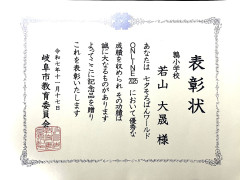 表彰状
鶉小学校
若山 大晟 様
あなたは 七夕そろばんワールド
ONLINE 2025 において優秀な
成績を収められ その功績は
誠に大なるものがあります
よってここに記念品を贈り
これを表彰いたします
令和七年十一月十七日
岐阜市教育委員会